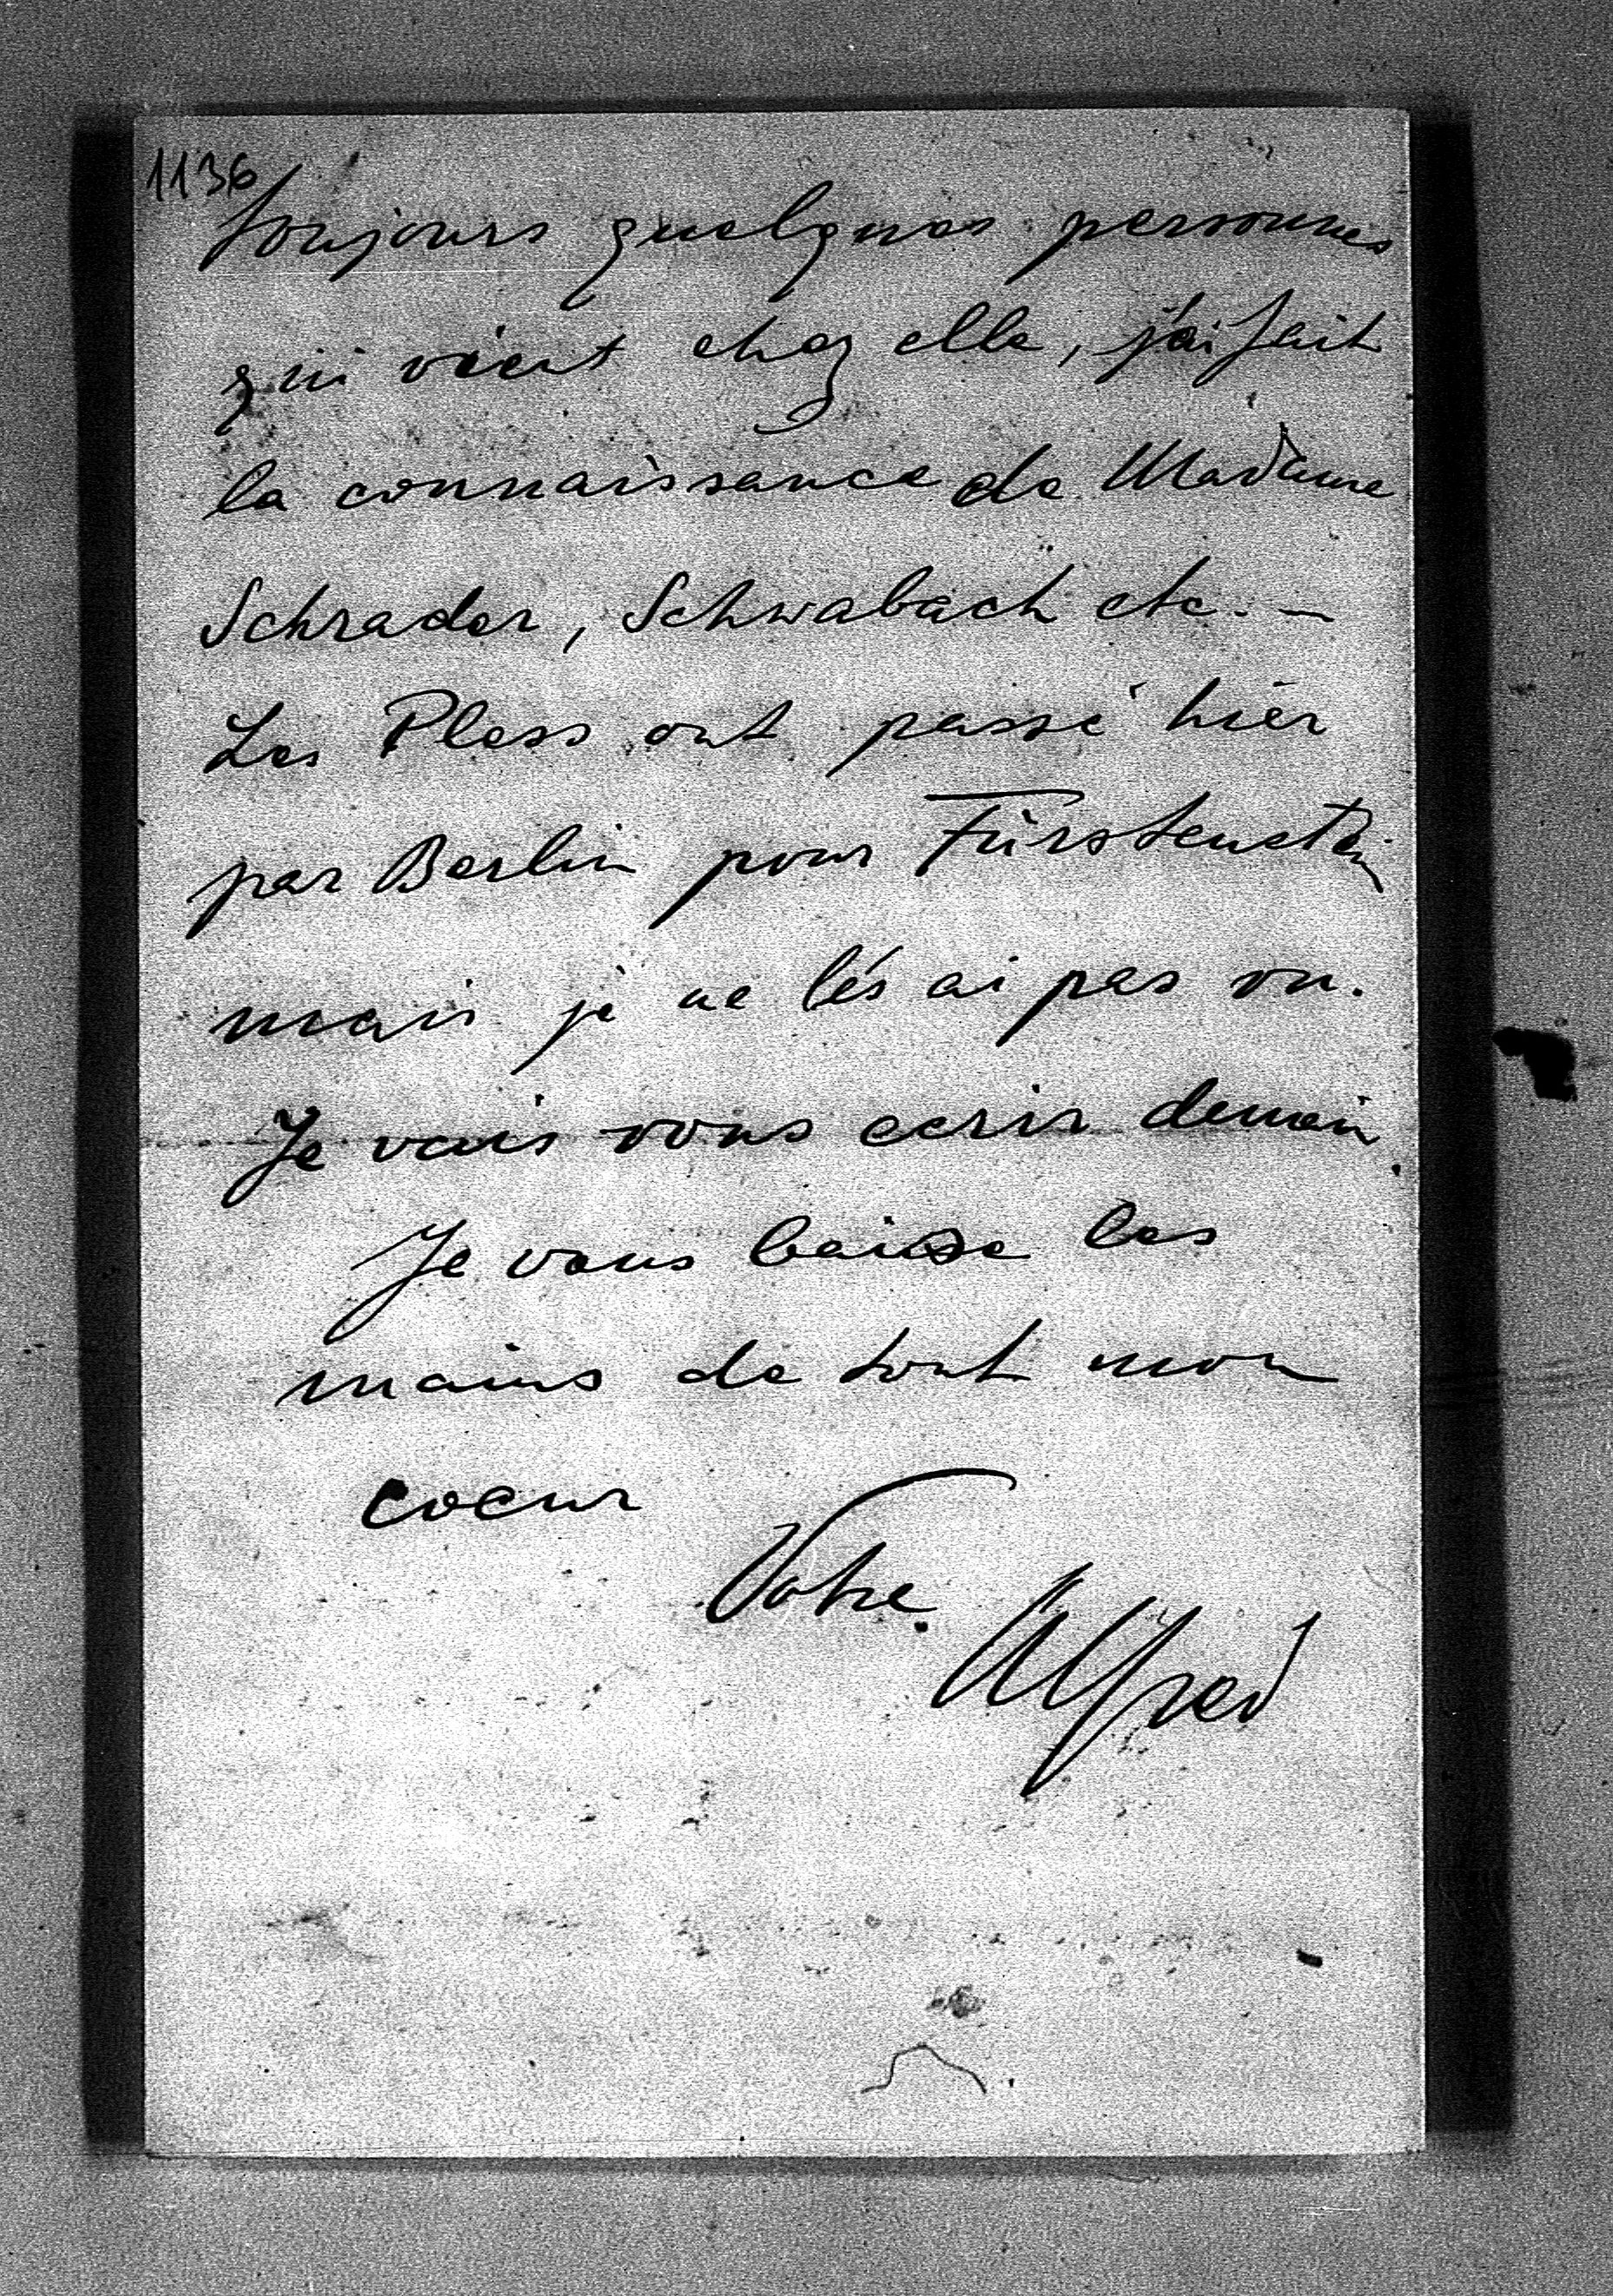 1136
toujours quelques personnes
qui vient chez elle, j'ai fait
la connaissance de Madame
Schrader, Schwabach etc. –
Les Pless ont passé hier
par Berlin pour Fürstenstein
mais je ne les ai pas vu.
Je vais vous ecrir demain.
Je vous baise les
mains de tout mon
coeur
Votre
Alfred